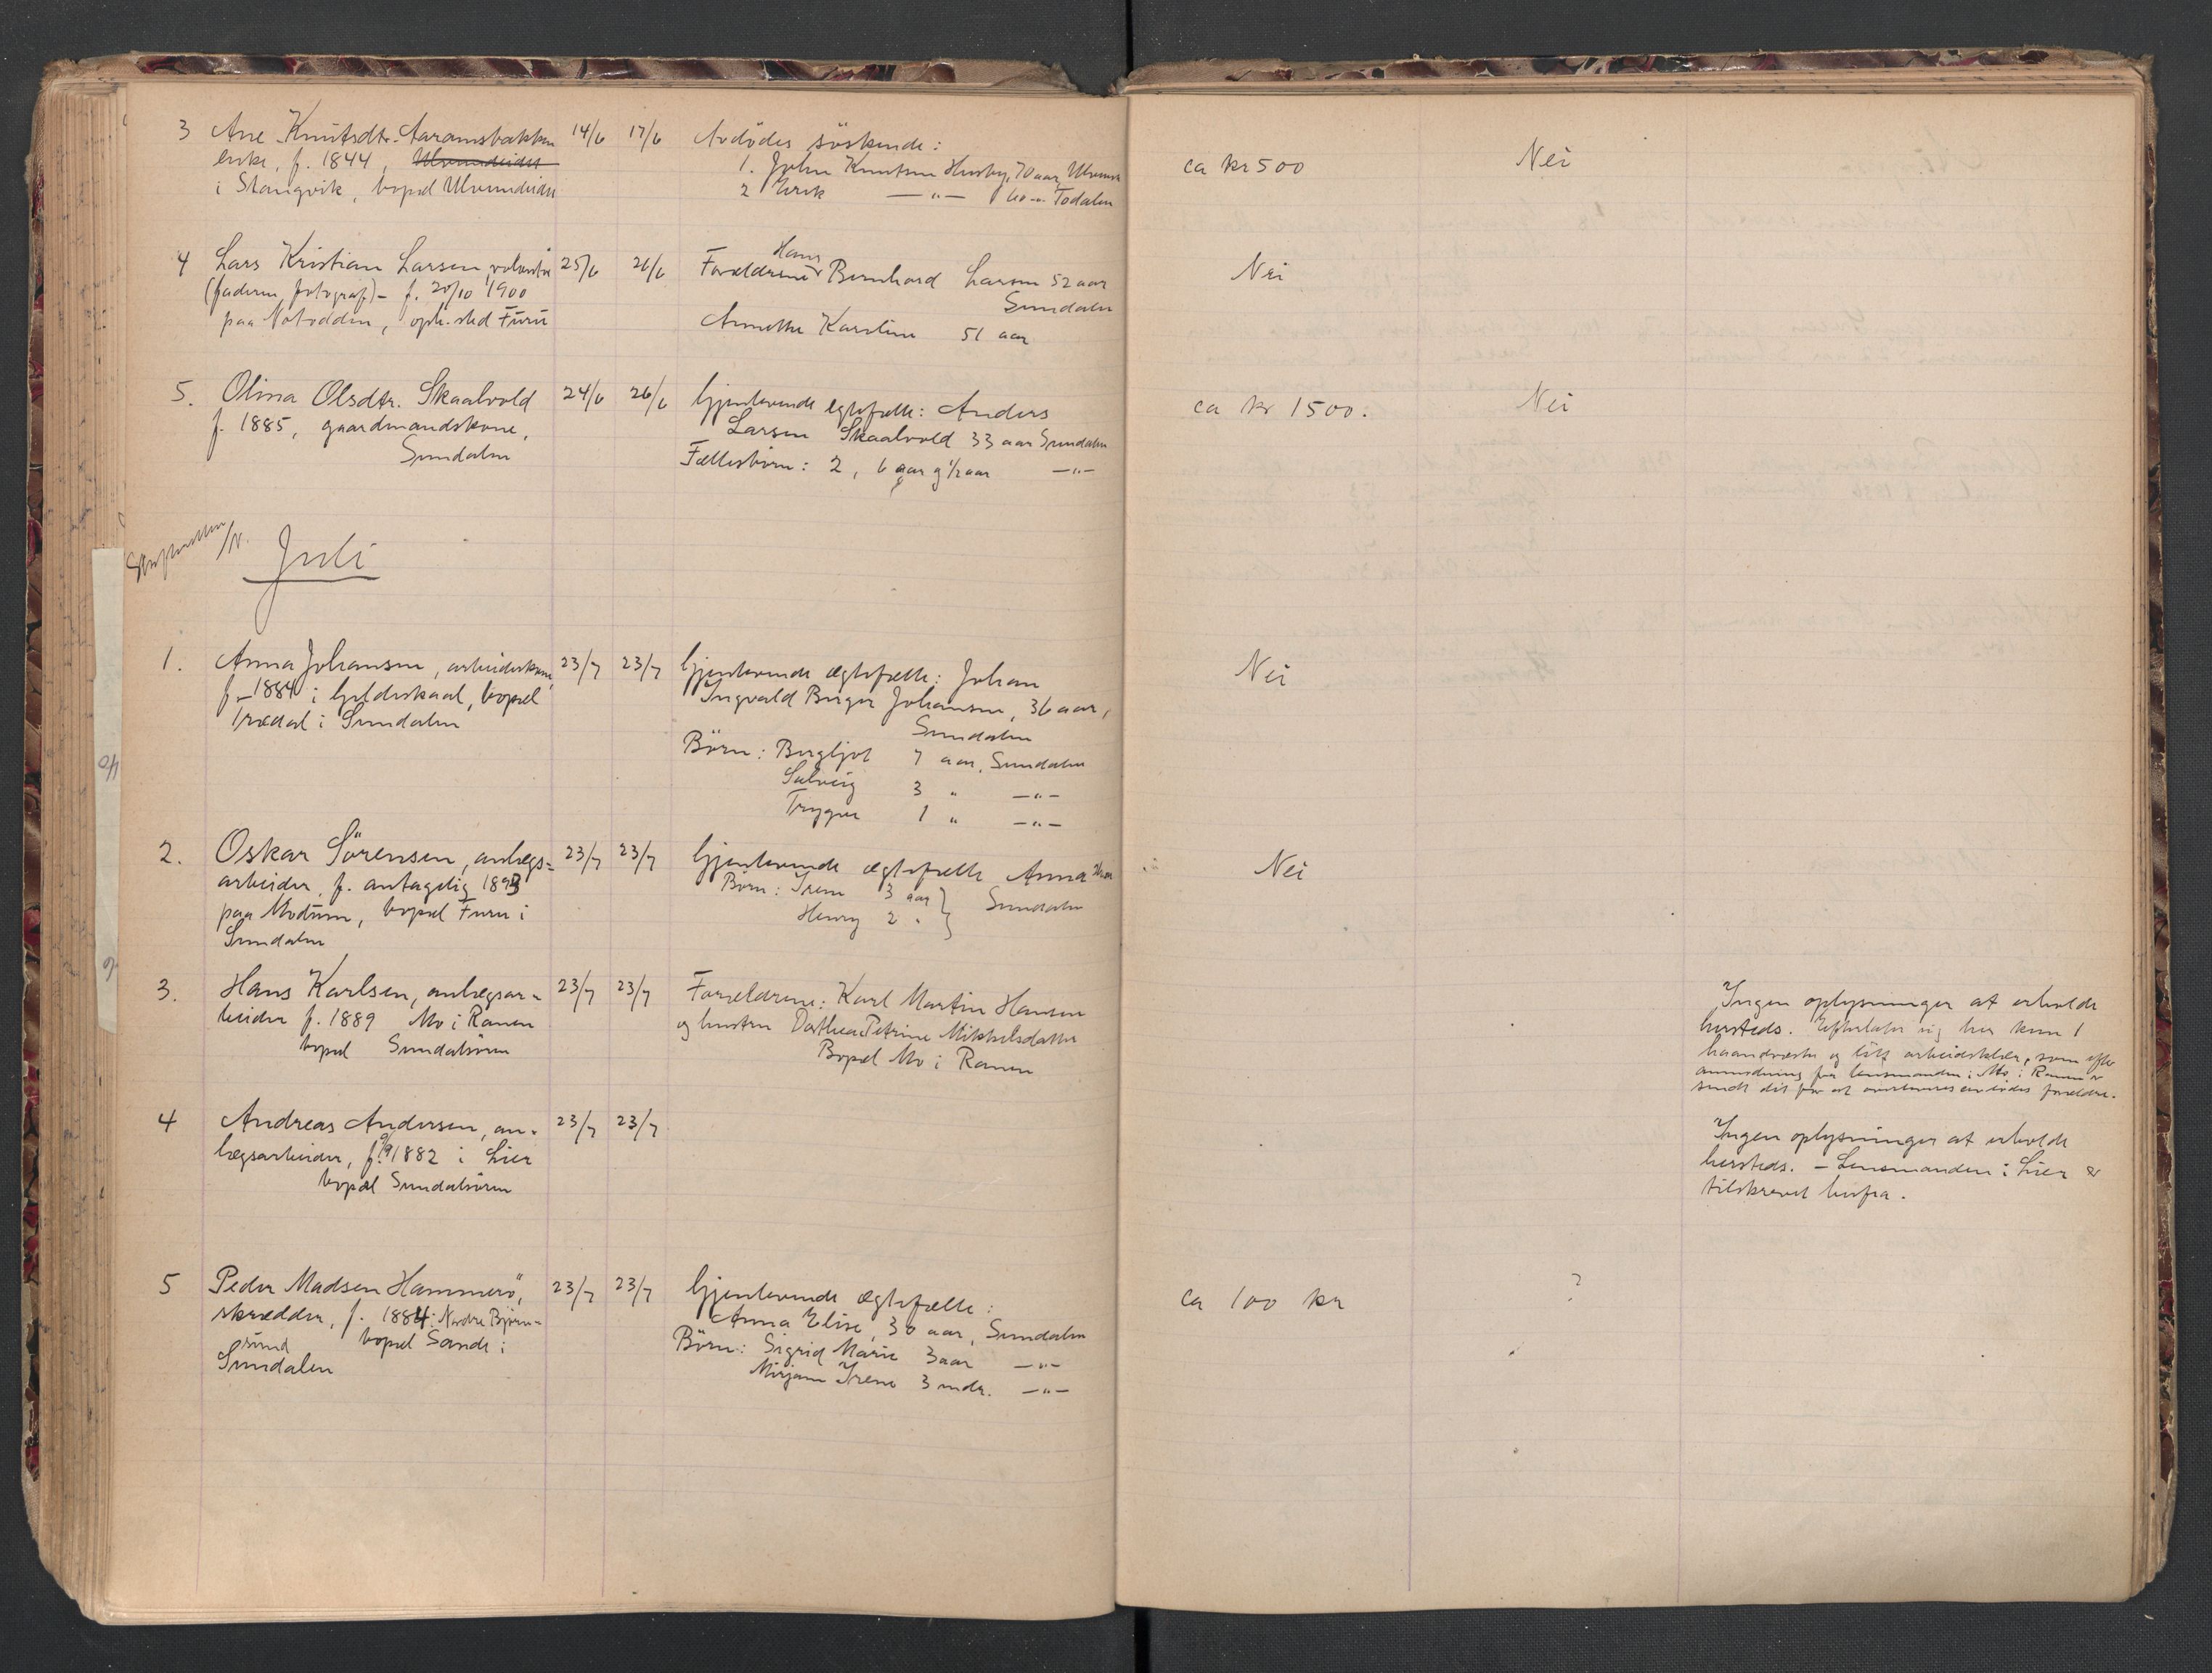 3 Ane Knutsdtr. Aaramsbakken 14/6 17/6 Avdödes söskende: ca kr 500 Nei
enke, f. 1844, Ulvundeidet 1. John Knutsen Husby, 70 aar, Ulvund
i Stangvik, bopæl Ulvundeidet 2 Erik —"— 60 — Todalen
4 Lars Kristian Larsen, volontör 25/6 26/6 Forældrene Hans Bernhard Larsen 52 aar Nei
(faderen fotograf) – f. 20/10 1900 Sundalen
paa Notodden, oph. sted Furu Annette Karoline 51 aar
5. Olina Olsdtr. Skaalvold 24/6 26/6 Gjenlevende egtefælle: Anders ca kr 1500. Nei
f. 1885, gaardmandskone, Larsen Skaalvold 33 aar Sundalen
Sundalen Fællesbörn: 2, 6 aar og 1/2 aar —"—
Juli
1. Anna Johansen, arbeiderkone, 23/7 23/7 Gjenlevende ægtefælle: Johan Nei
f. 1884 i Gildeskaal, bopæl Ingvald Birger Johansen, 36 aar,
Trædal i Sundalen Sundalen
Börn: Bergljot 7 aar, Sundalen
Solveig 3 " —"—
Trygve 1 " —"—
2. Oskar Sörensen, anlegs= 23/7 23/7 Gjenlevende ægtefælle Anna Nei
arbeider, f. antagelig 1893 Börn: Irene 3 aar } Sundalen
paa Modum, bopæl Furu i Henry 2 "
Sundalen
3. Hans Karlsen, anlegsar= 23/7 23/7 Forældrene: Karl Martin Hansen Ingen oplysninger at erholde
beider f. 1889 Mo i Ranen og hustru Dorthea Petrine Mikkelsdatter hersteds. Efterlater sig her kun 1
bopæl Sundalsören Bopæl Mo i Ranen haandvæske og litt arbeidsklær, som efter
anmodning fra lensmanden i Mo i Ranen er
sendt dit for at overleveres avdödes forældre.
4 Andreas Andersen, an= 23/7 23/7 Ingen oplysninger at erholde
lægsarbeider, f. 1882 i Lier hersteds. – Lensmanden i Lier er
bopæl Sundalsören tilskrevet herfra.
5 Peder Madsen Hammerö, 23/7 23/7 Gjenlevende ægtefælle: ca 100 kr ?
skrædder, f. 1884 i Nordre Björn= Anna Elise, 30 aar, Sundalen
sund bopæl Sande i Börn: Sigrid Marie 3 aar —"—
Sundalen Mirjam Irene 3 mdr. —"—